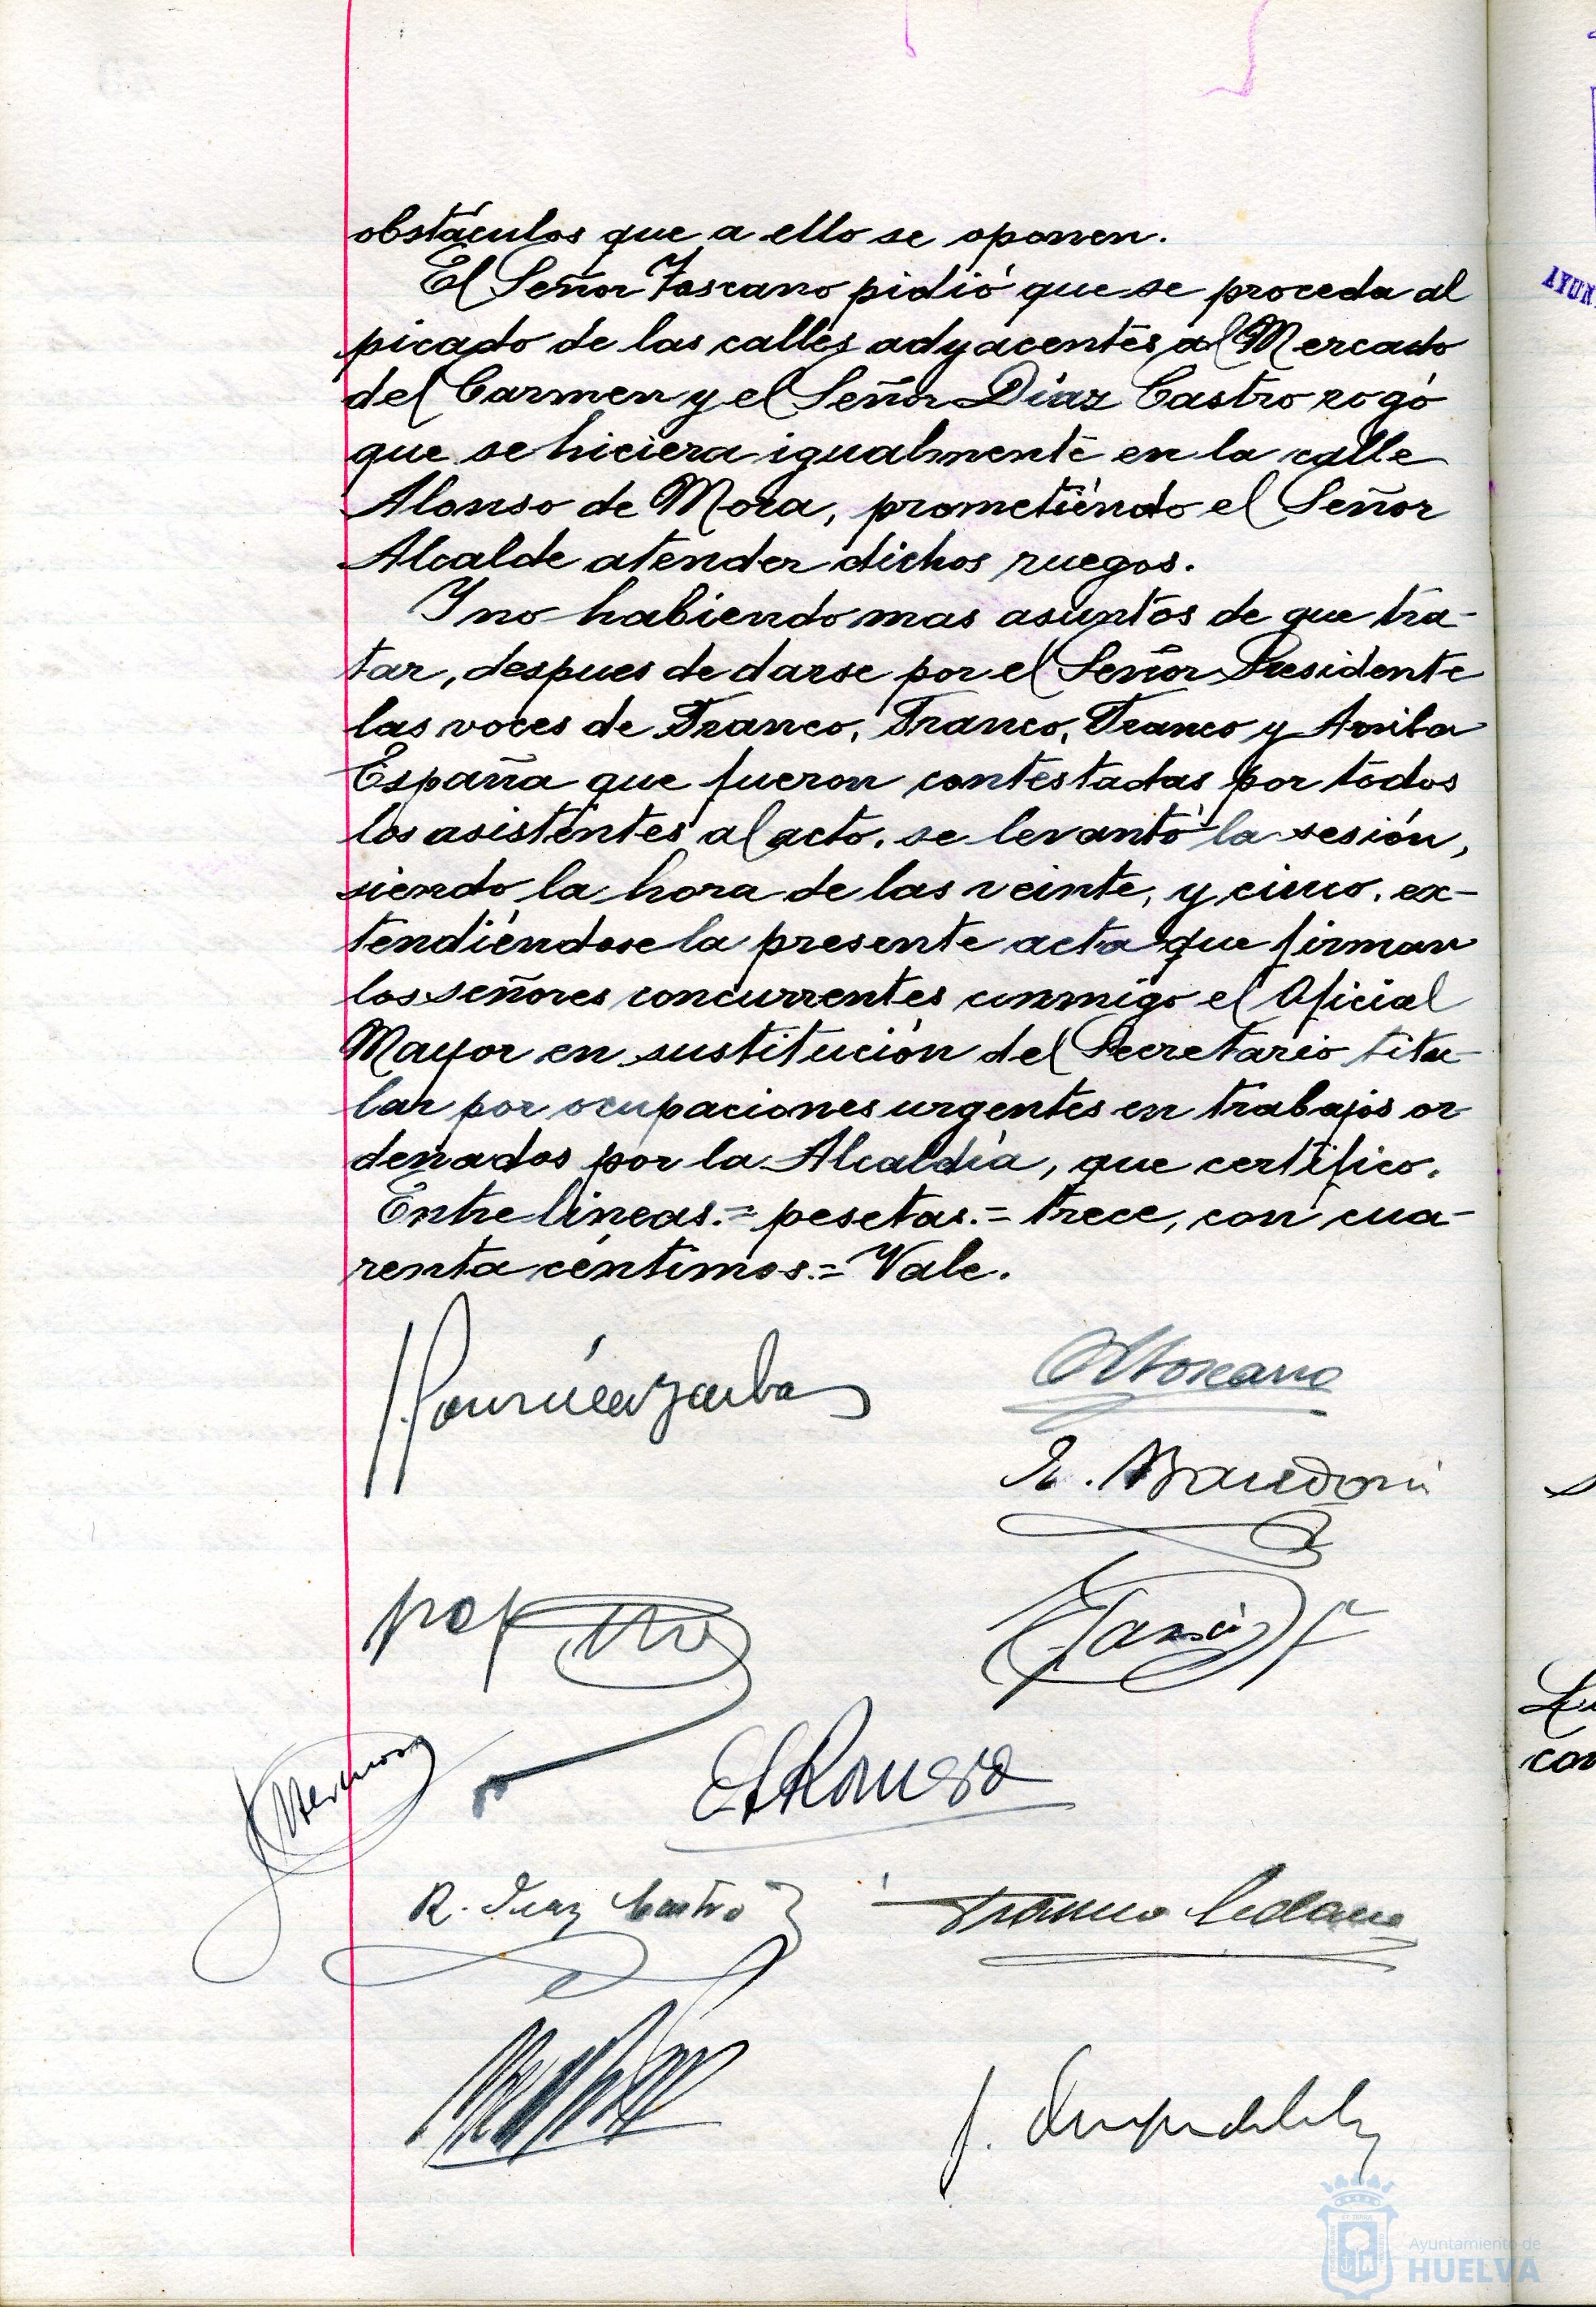 obstáculos que a ello se oponen.
El Señor Toscano pidió que se proceda al
picado de las calles adyacentes al Mercado
del Carmen y el Señor Díaz Castro rogó
que se hiciera igualmente en la calle
Alonso de Mora, prometiendo el Señor
Alcalde atender dichos ruegos.
Y no habiendo mas asuntos de que tra-
tar, despues de darse por el Señor Presidente
las voces de Franco, Franco, Franco y Arriba
España que fueron contestadas por todos
los asistentes al acto, se levantó la sesión,
siendo la hora de las veinte, y cinco, ex-
tendiéndose la presente acta que firman
los señores concurrentes conmigo el Oficial
Mayor en sustitución del Secretario titu-
lar por ocupaciones urgentes en trabajos or-
denados por la Alcaldía, que certifico.
Entre líneas.= pesetas.= trece, con cua-
renta céntimos.= Vale.
R. Diaz Castro
AYUN
con
Ayuntamiento de
HUELVA